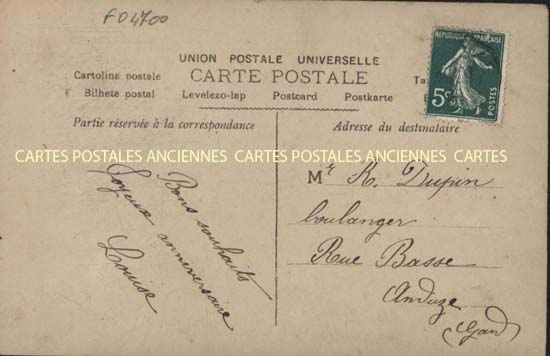 FD4700
UNION POSTALE UNIVERSELLE
CARTE POSTALE
Cartolina postale
Bilhete postal Levelezo-lap Postcard Postkarte
REPUBLIQUE FRANÇAISE
5c
POSTES
Partie réservée à la correspondance
Adresse du destinataire
CARTES POSTALES ANCIENNES CARTES POSTALES ANCIENNES CARTES
Bons souhaits
Joyeux anniversaire
Louise
Mr R. Dupin
boulanger
Rue Basse
Anduze
(Gard)